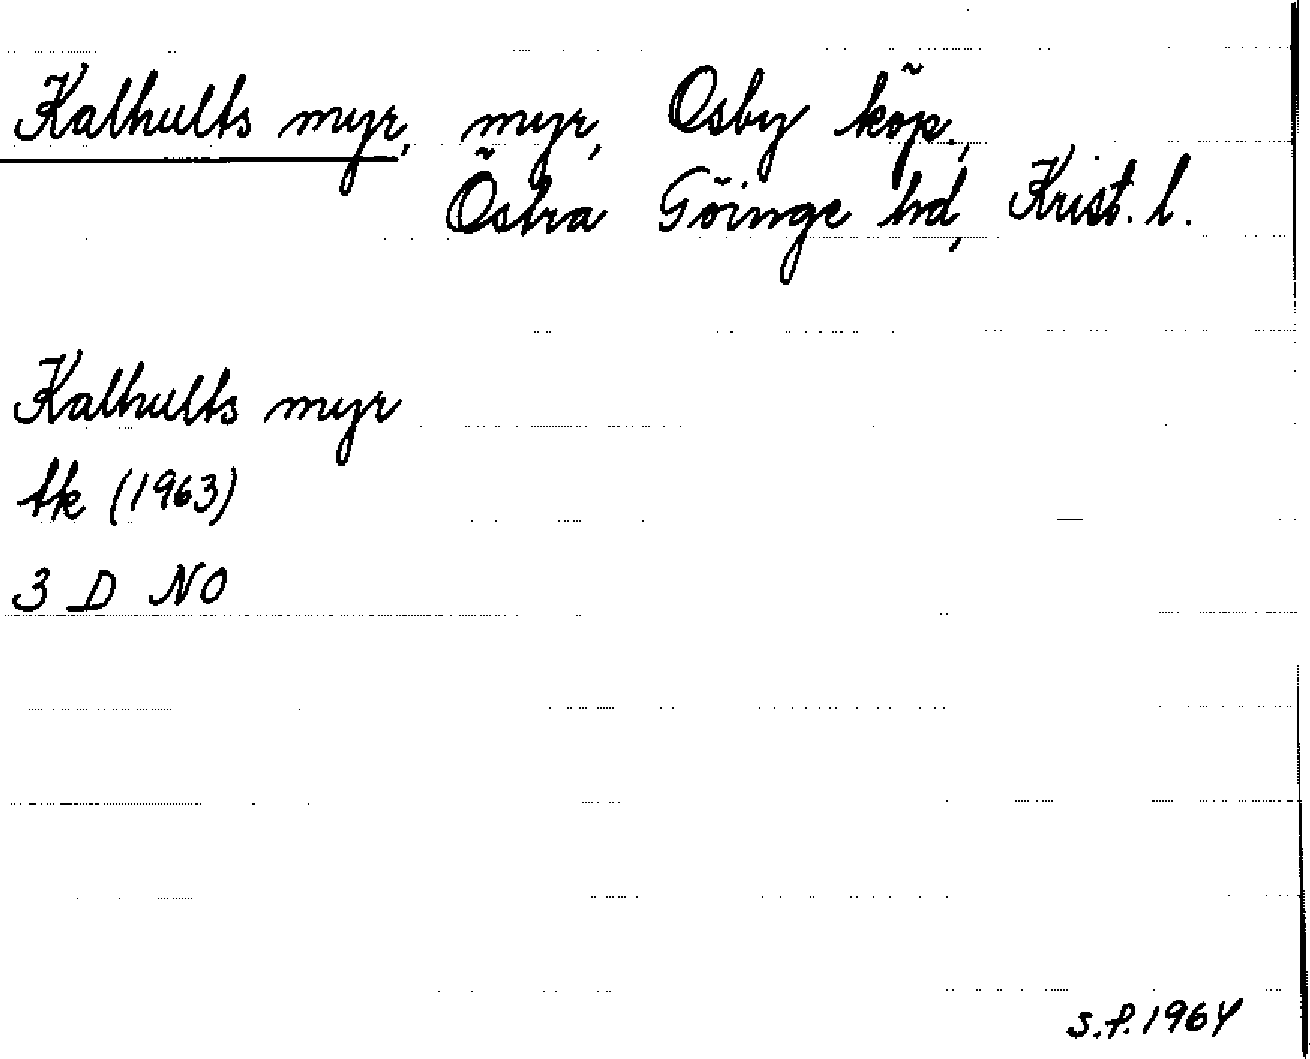 Kalhults myr, myr, Osby köp.,
Östra Göinge hd, Krist. l.
Kalhults myr
tk (1963)
3 D NO
s.f. 1964